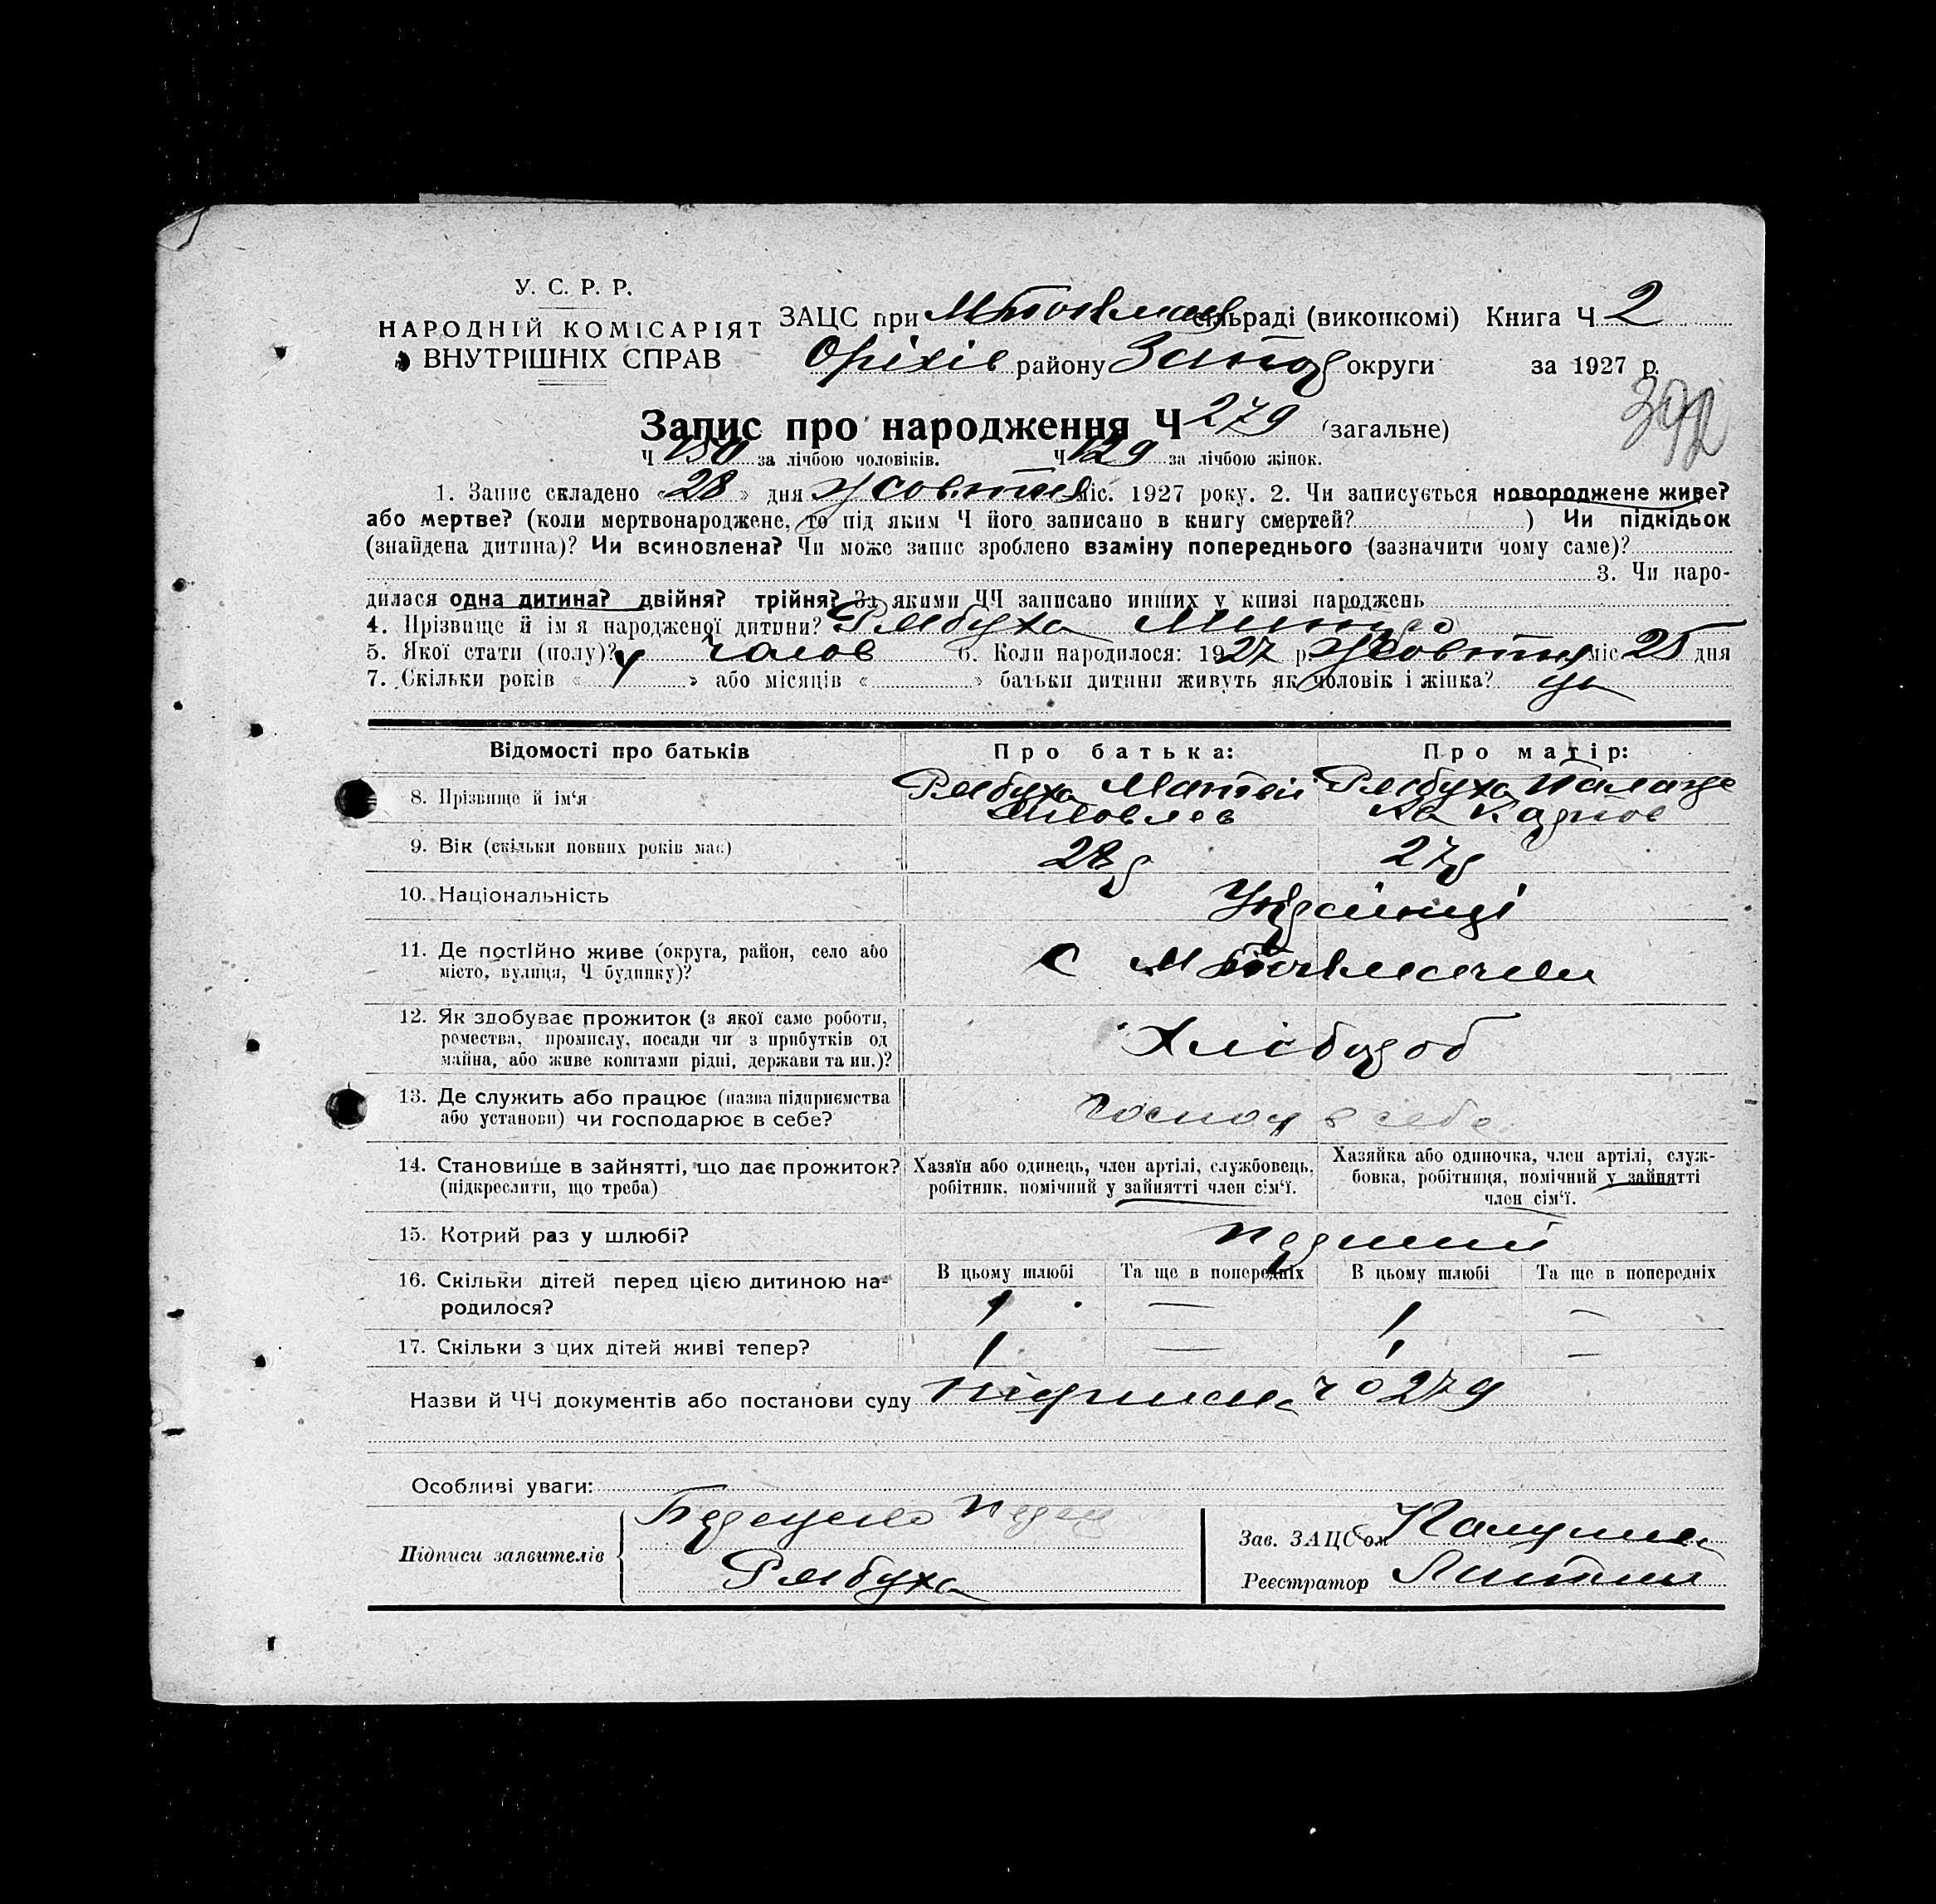 У. С. Р. Р.
НАРОДНІЙ КОМІСАРІЯТ
ВНУТРІШНІХ СПРАВ
ЗАЦС при сільраді (виконкомі) Книга Ч 2
Оріхів району Запор округи за 1927 р.
392
Запис про народження Ч 279 (загальне)
Ч 150 за лічбою чоловіків. Ч 129 за лічбою жінок.
1. Запис складено «28» дня жовтня міс. 1927 року. 2. Чи записується новороджене живе?
або мертве? (коли мертвонароджене, то під яким Ч його записано в книгу смертей? ) Чи підкідьок
(знайдена дитина)? Чи всиновлена? Чи може запис зроблено взаміну попереднього (зазначити чому саме)?
3. Чи наро-
дилася одна дитина? двійня? трійня? За якими ЧЧ записано инших у книзі народжень
4. Прізвище й ім я народженої дитини? Рябуха
5. Якої стати (полу)? чолов 6. Коли народилося: 1927 р. Жовтня міс 25 дня
7. Скільки років « » або місяців « » батьки дитини живуть як чоловік і жінка?
Відомості про батьків Про батька: Про матір:
8. Прізвище й ім‘я Рябуха Матвій Рябуха Палаж
Яковлев ка Карпов
9. Вік (скільки повних років має) 28 р 27 р
10. Національність Українці
11. Де постійно живе (округа, район, село або
місто, вулиця, Ч будинку)? С М
12. Як здобуває прожиток (з якої саме роботи,
ремества, промислу, посади чи з прибутків од
майна, або живе коштами рідні, держави та ин.)? Хлібороб
13. Де служить або працює (назва підприємства
або установи) чи господарює в себе? Господ в себе
14. Становище в зайнятті, що дає прожиток?
(підкреслити, що треба)
Хазяїн або одинець, член артілі, службовець,
робітник, помічний у зайнятті член сім‘ї.
Хазяйка або одиночка, член артілі, служ-
бовка, робітниця, помічний у зайнятті
член сім‘ї.
15. Котрий раз у шлюбі? перший
16. Скільки дітей перед цією дитиною на-
родилося?
В цьому шлюбі Та ще в попередніх В цьому шлюбі Та ще в попередніх
1 — 1 —
17. Скільки з цих дітей живі тепер? 1 — 1 —
Назви й ЧЧ документів або постанови суду підписка ч 0279
Особливі уваги:
Підписи заявителів
Рябуха
Зав. ЗАЦС‘ом
Реєстратор